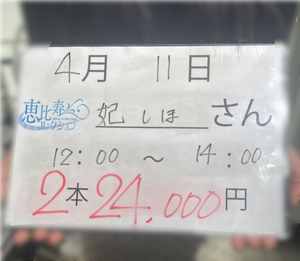 4月 11日
恵比寿
妃 しほ さん
12:00 〜 14:00
2本 24,000円